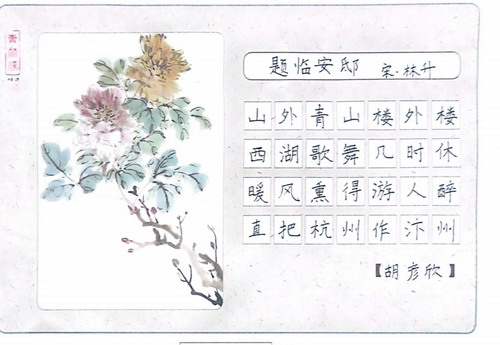 题临安邸 宋·林升
山外青山楼外楼
西湖歌舞几时休
暖风熏得游人醉
直把杭州作汴州
【胡彦欣】